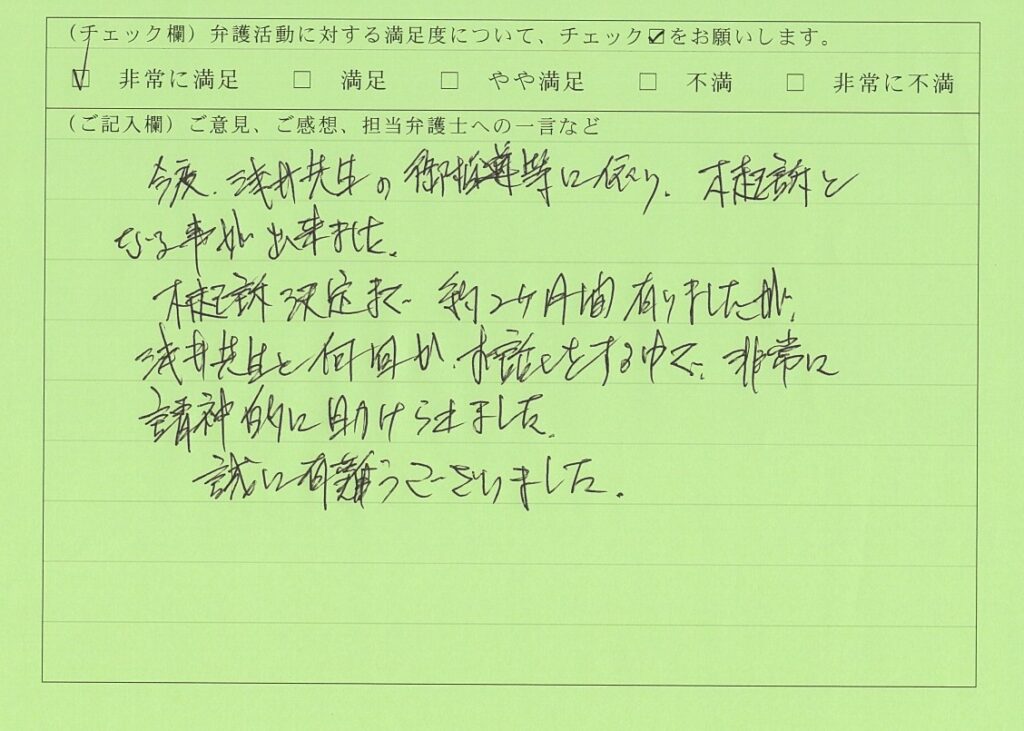 （チェック欄）弁護活動に対する満足度について、チェック☑をお願いします。
☑ 非常に満足 □ 満足 □ やや満足 □ 不満 □ 非常に不満
（ご記入欄）ご意見、ご感想、担当弁護士への一言など
今度、浅井先生の御指導等に依り、不起訴と
なる事が出来ました。
不起訴決定まで約2ヶ月間有りましたが、
浅井先生と何回かお話しをする中で、非常に
精神的に助けられました。
誠に有難うございました。